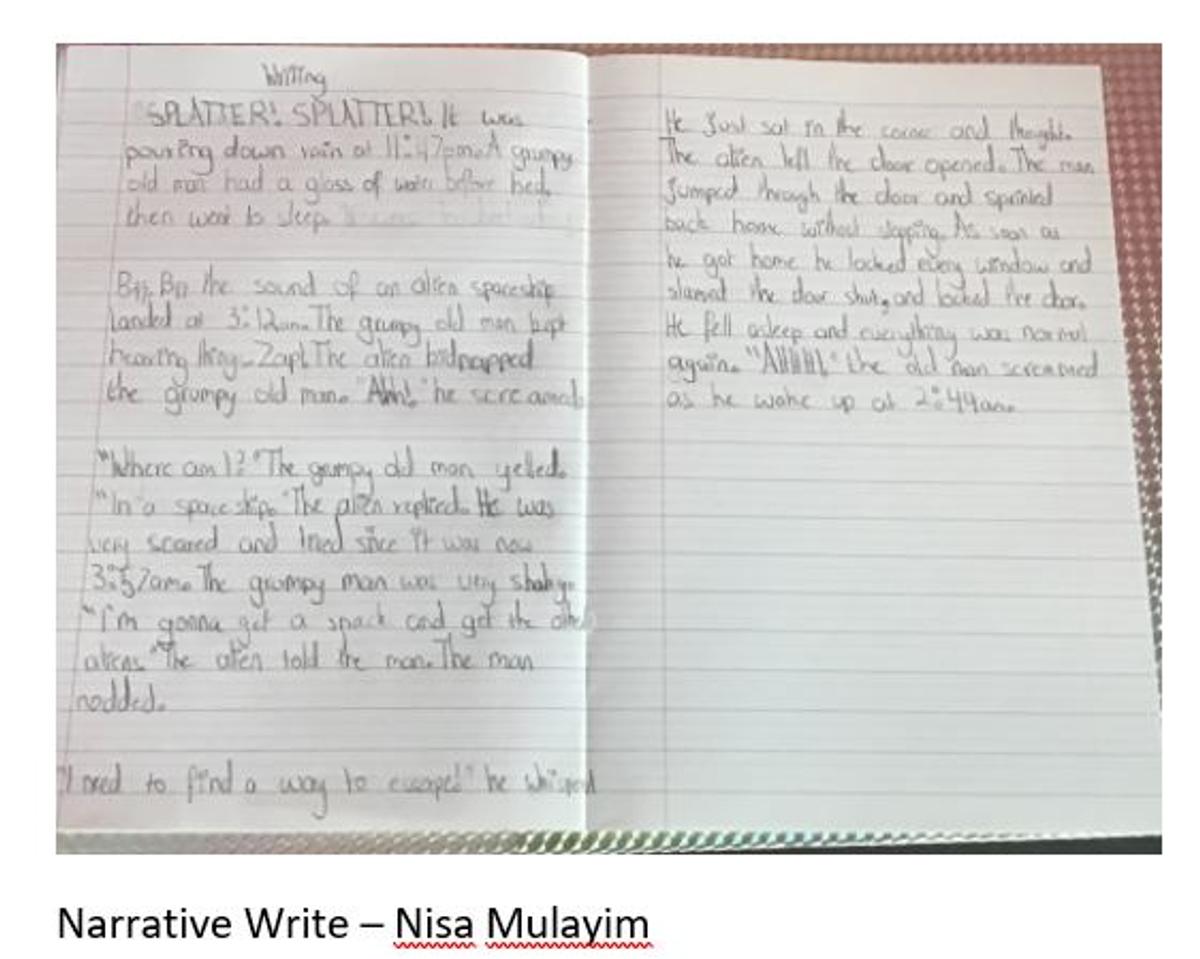 Writing
"SPLATTER! SPLATTER! It was
pouring down rain at 11:47pm. A grumpy
old man had a glass of water before bed,
then went to sleep.
Bzz, Bzz the sound of an alien spaceship
landed at 3:12am. The grumpy old man kept
hearing thing. Zap! The alien kidnapped
the grumpy old man. "Ahh!" he screamed.
"Where am I?" The grumpy old man yelled.
"In a space ship." The alien replied. He was
very scared and tried since it was now
3:57am. The grumpy man was very shaky.
"I'm gonna get a snack and get the other
aliens" The alien told the man. The man
nodded.
"I need to find a way to escape!" he whisperd
He Just sat in the corner and thought.
The alien left the door opened. The man
Jumped through the door and sprinted
back home without stopping. As soon as
he got home he locked every window and
slamed the door shut, and locked the door.
He fell asleep and everything was normal
again. "AHHHH," the old man screamed
as he woke up at 2:44am.
Narrative Write – Nisa Mulayim